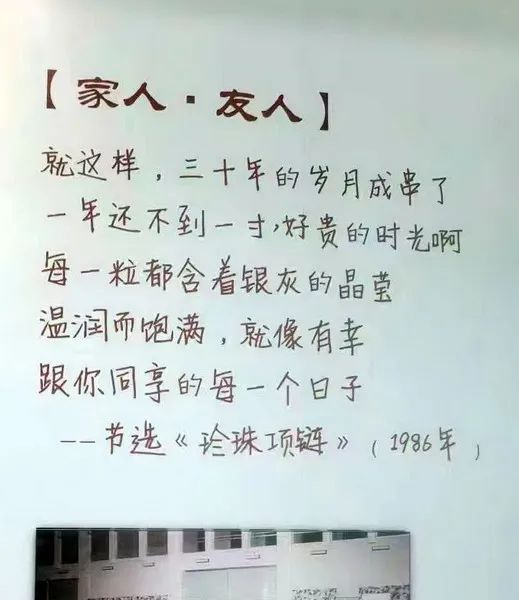 【家人·友人】
就这样，三十年的岁月成串了
一年还不到一寸，好贵的时光啊
每一粒都含着银灰的晶莹
温润而饱满，就像有幸
跟你同享的每一个日子
——节选《珍珠项链》（1986年）